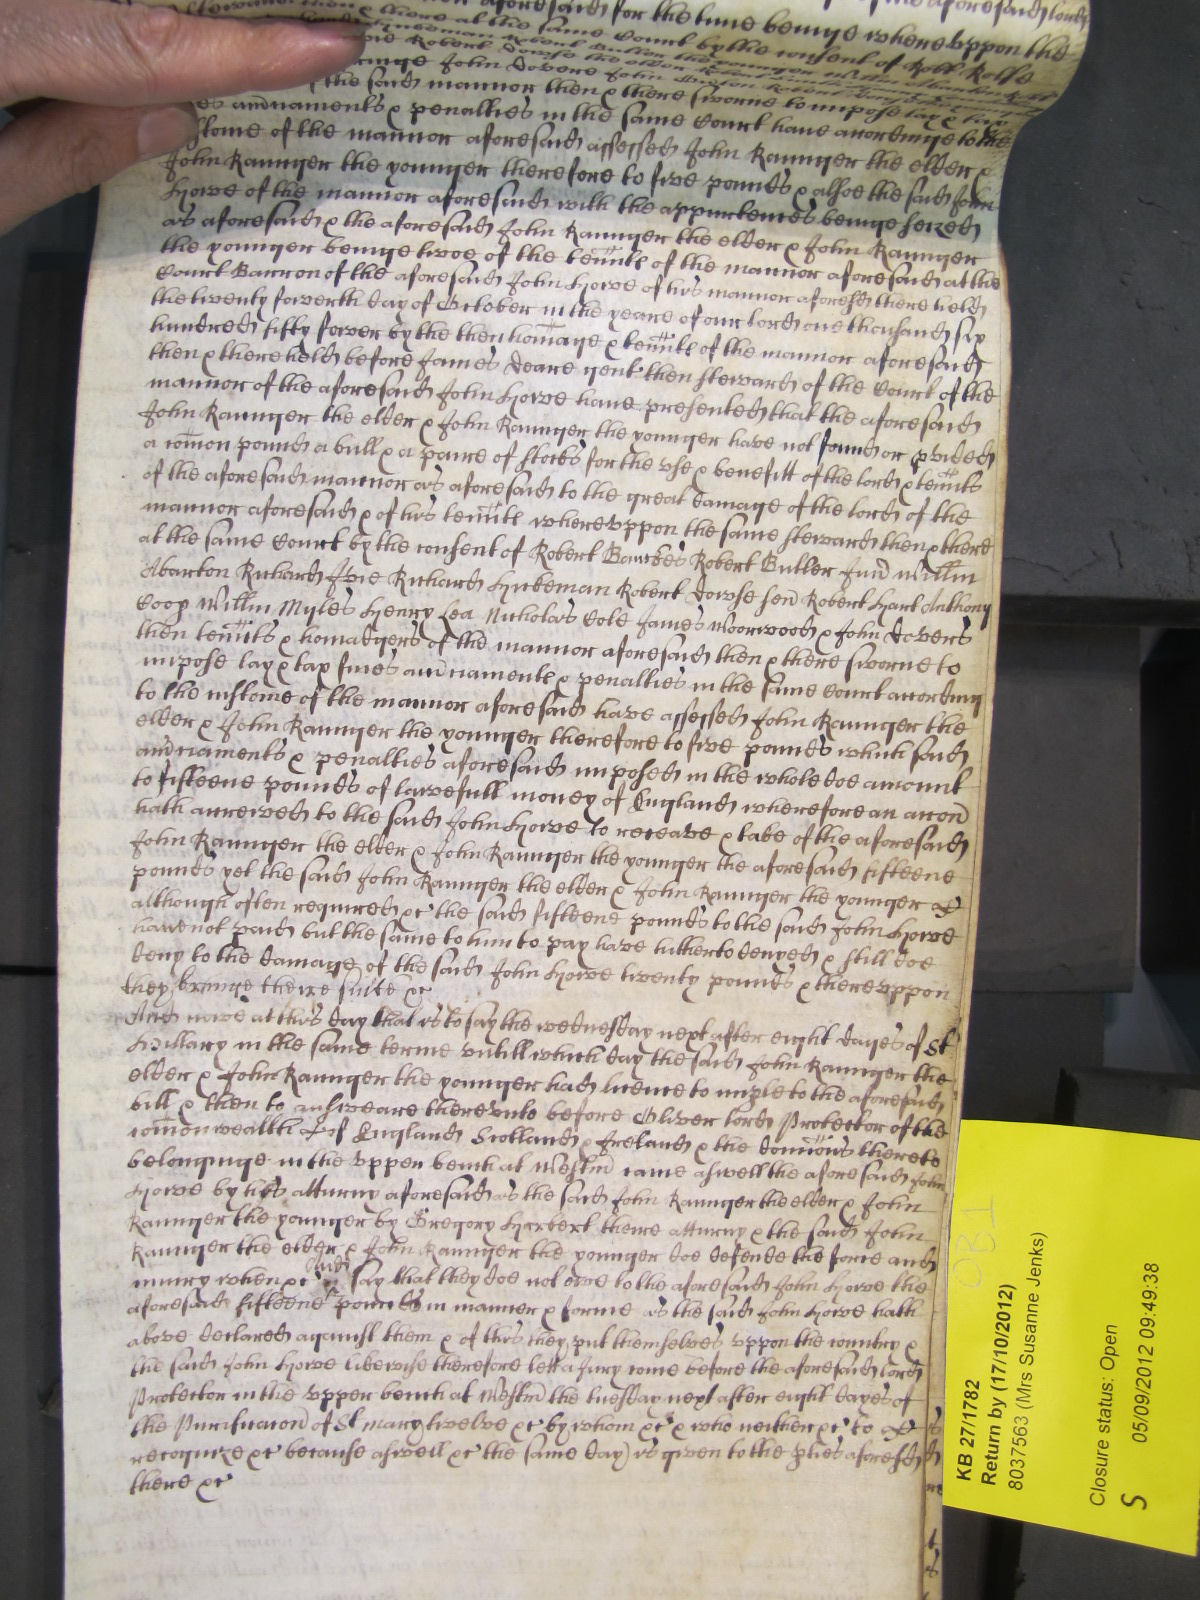 aforesaid for the time beinge whereuppon the
then & there at the same Court by the consent of Robt Rolfe
Robert Butler the younger
Robert Dowse the elder
John Dovers John
the said mannor then & there sworne to impose lay & tax
amrciaments & penalties in the same Court have accordinge to the
Custome of the mannor aforesaid assessed John Raunger the elder &
John Raunger the younger therefore to five pounds & alsoe the said John
Howe of the mannor aforesaid with the appurtences beinge seized
as aforesaid & the aforesaid John Raunger the elder & John Raunger
the younger beinge twoe of the tennte of the mannor aforesaid at the
Court Barron of the aforesaid John Howe of his mannor aforesd there held
the twenty fowerth day of October in the yeare of our lord one thousand six
hundred fifty fower by the then homage & tennts of the mannor aforesaid
then & there held before James Deare gent then steward of the Court of the
mannor of the aforesaid John Howe have presented that the aforesaid
John Raunger the elder & John Raunger the younger have not found or pvided
a comon pound a bull & a paire of stocks for the use & benefitt of the lord & tennts
of the aforesaid mannor as aforesaid to the great damage of the lord of the
mannor aforesaid & of his tennte whereuppon the same steward then & there
at the same Court by the consent of Robert Butler Junr Willm
Abarton Richard Ivie Richard Hickeman Robert Dowse senr Robert Hart Anthony
Coop Willm Myles Henry Lea Nicholas Cole James Moorwood & John Dovers
then tennts & homadgers of the mannor aforesaid then & there sworne to
impose lay & tax fines amrciamente & penalties in the same Court according
to the custome of the mannor aforesaid have assessed John Raunger the
elder & John Raunger the younger therefore to five pounds which said
amrciaments & penalties aforesaid imposed in the whole doe amount
to fifteene pounds of lawefull money of England wherefore an accon
hath accrewed to the said John Howe to receave & take of the aforesaid
John Raunger the elder & John Raunger the younger the aforesaid fifteene
pounds yet the said John Raunger the elder & John Raunger the younger
although often required &c the said fifteene pounds to the said John Howe
have not paid but the same to him to pay have hitherto denyed & still doe
deny to the damage of the said John Howe twenty pounds & thereuppon
they bringe theire suite &c
And nowe at this day that is to say the wednesday next after eight dayes of St
Hillary in the same terme untill which day the said John Raunger the
elder & John Raunger the younger had licence to imple to the aforesaid
bill & then to answeare thereunto before Oliver lord Protector of the
comonwealth of England Scotland & Ireland & the domions thereto
belonginge in the upper bench at Westmr came aswell the aforesaid John
Howe by his atturny aforesaid as the said John Raunger the elder & John
Raunger the younger by Gregory Herbert theire atturny & the said John
Raunger the elder & John Raunger the younger doe defende the force and
iniury when &c And say that they doe not owe to the aforesaid John Howe the
aforesaid fifteene pounds in manner & forme as the said John Howe hath
above declared against them & of this they put themselves uppon the country &
the said John Howe likewise therefore lett a Jury come before the aforesaid lord
Protector in the upper bench at Westmr the tuesday next after eight dayes of
the Purificacon of St Mary twelve &c by whom &c & who neither &c to
recognize &c because aswell &c the same day is given to the pties aforesd
there &c
KB 27/1782
Return by (17/10/2012)
8037563 (Mrs Susanne Jenks)
Closure status: Open
S 05/09/2012 09:49:38